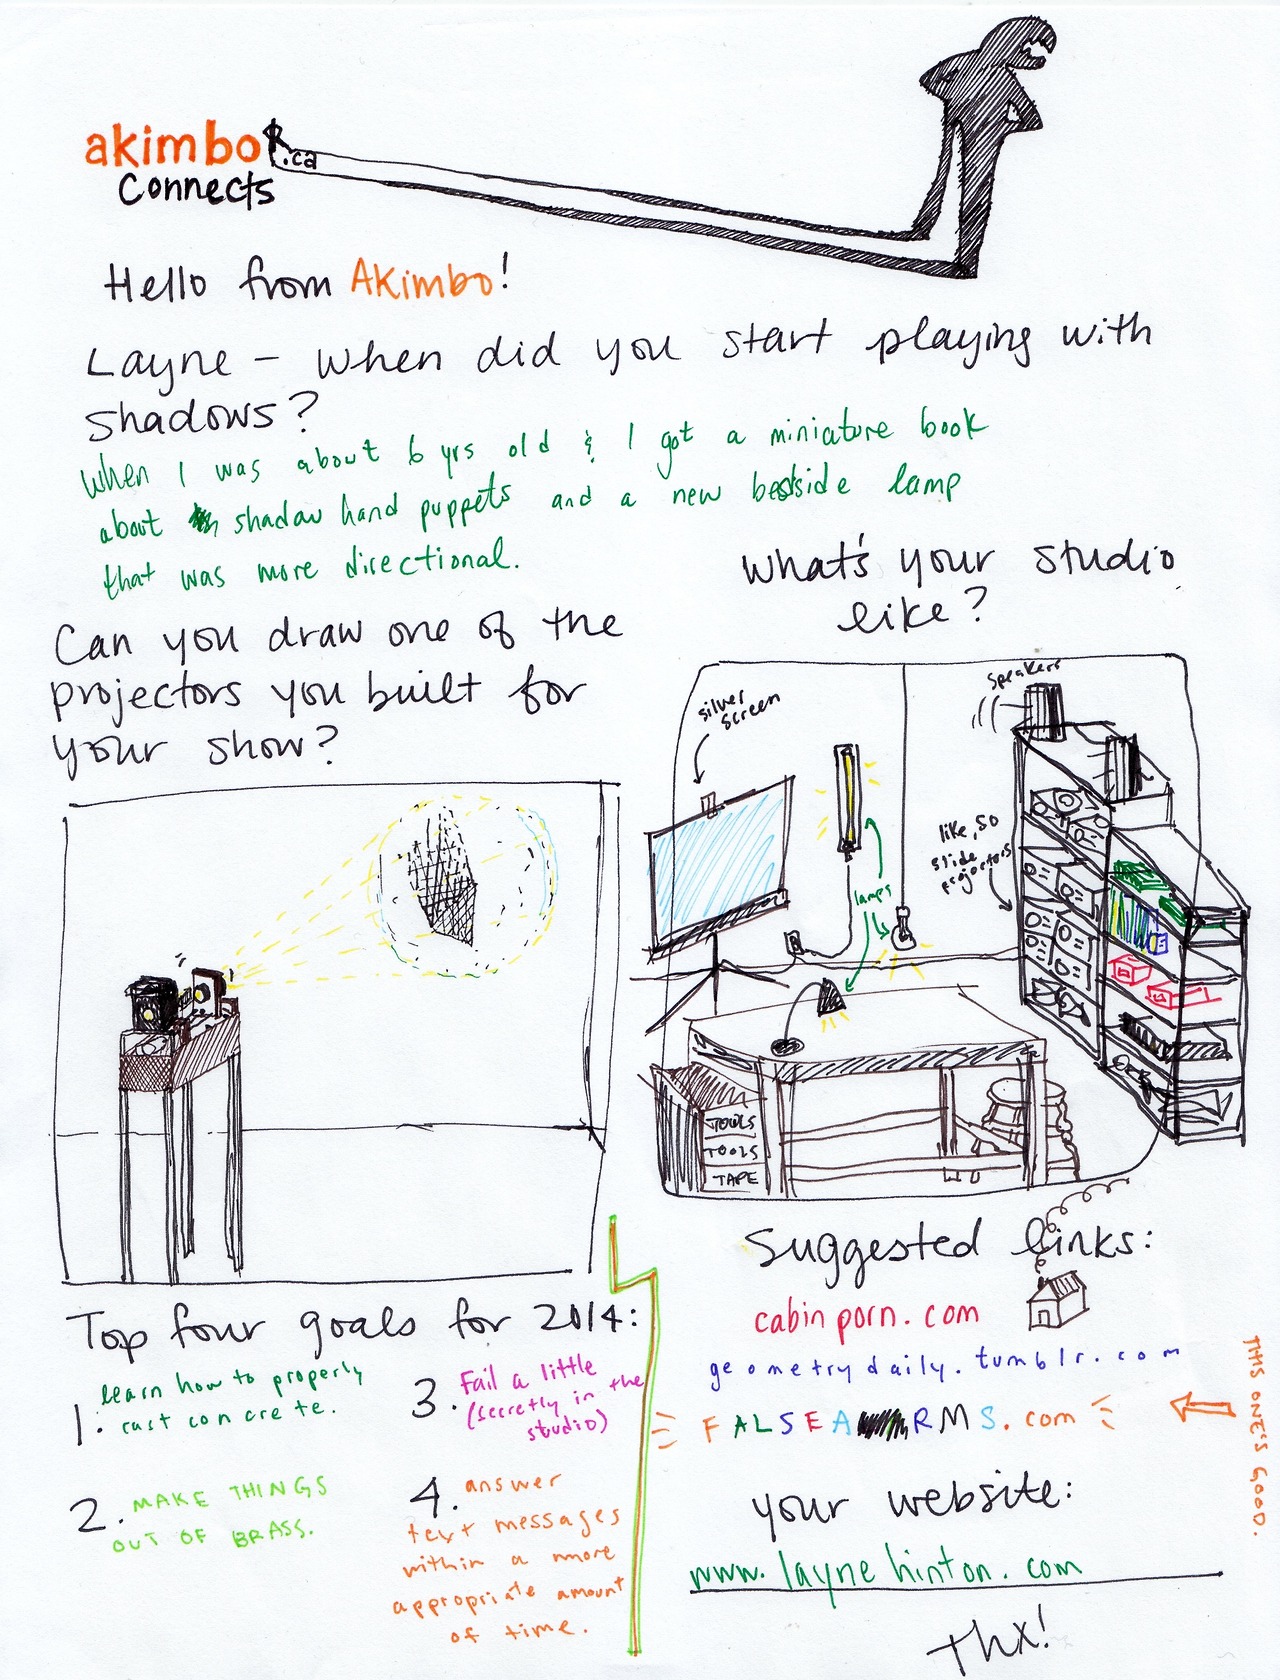 akimbo
.ca
Connects
Hello from Akimbo!
Layne – When did you start playing with
shadows?
When I was about 6 yrs old & I got a miniature book
about shadow hand puppets and a new bedside lamp
that was more directional.
What's your studio
like?
Can you draw one of the
projectors you built for
your show?
silver
screen
speakers
like, 50
slide
projectors
lamps
TOOLS
TOOLS
TAPE
Top four goals for 2014:
1. learn how to properly
cast concrete.
2. MAKE THINGS
OUT OF BRASS.
3. Fail a little
(secretly in the
studio)
4. answer
text messages
within a more
appropriate amount
of time.
Suggested links:
cabinporn.com
geometrydaily.tumblr.com
FALSEARMS.com
THIS ONE'S GOOD.
your website:
www.laynehinton.com
Thx!